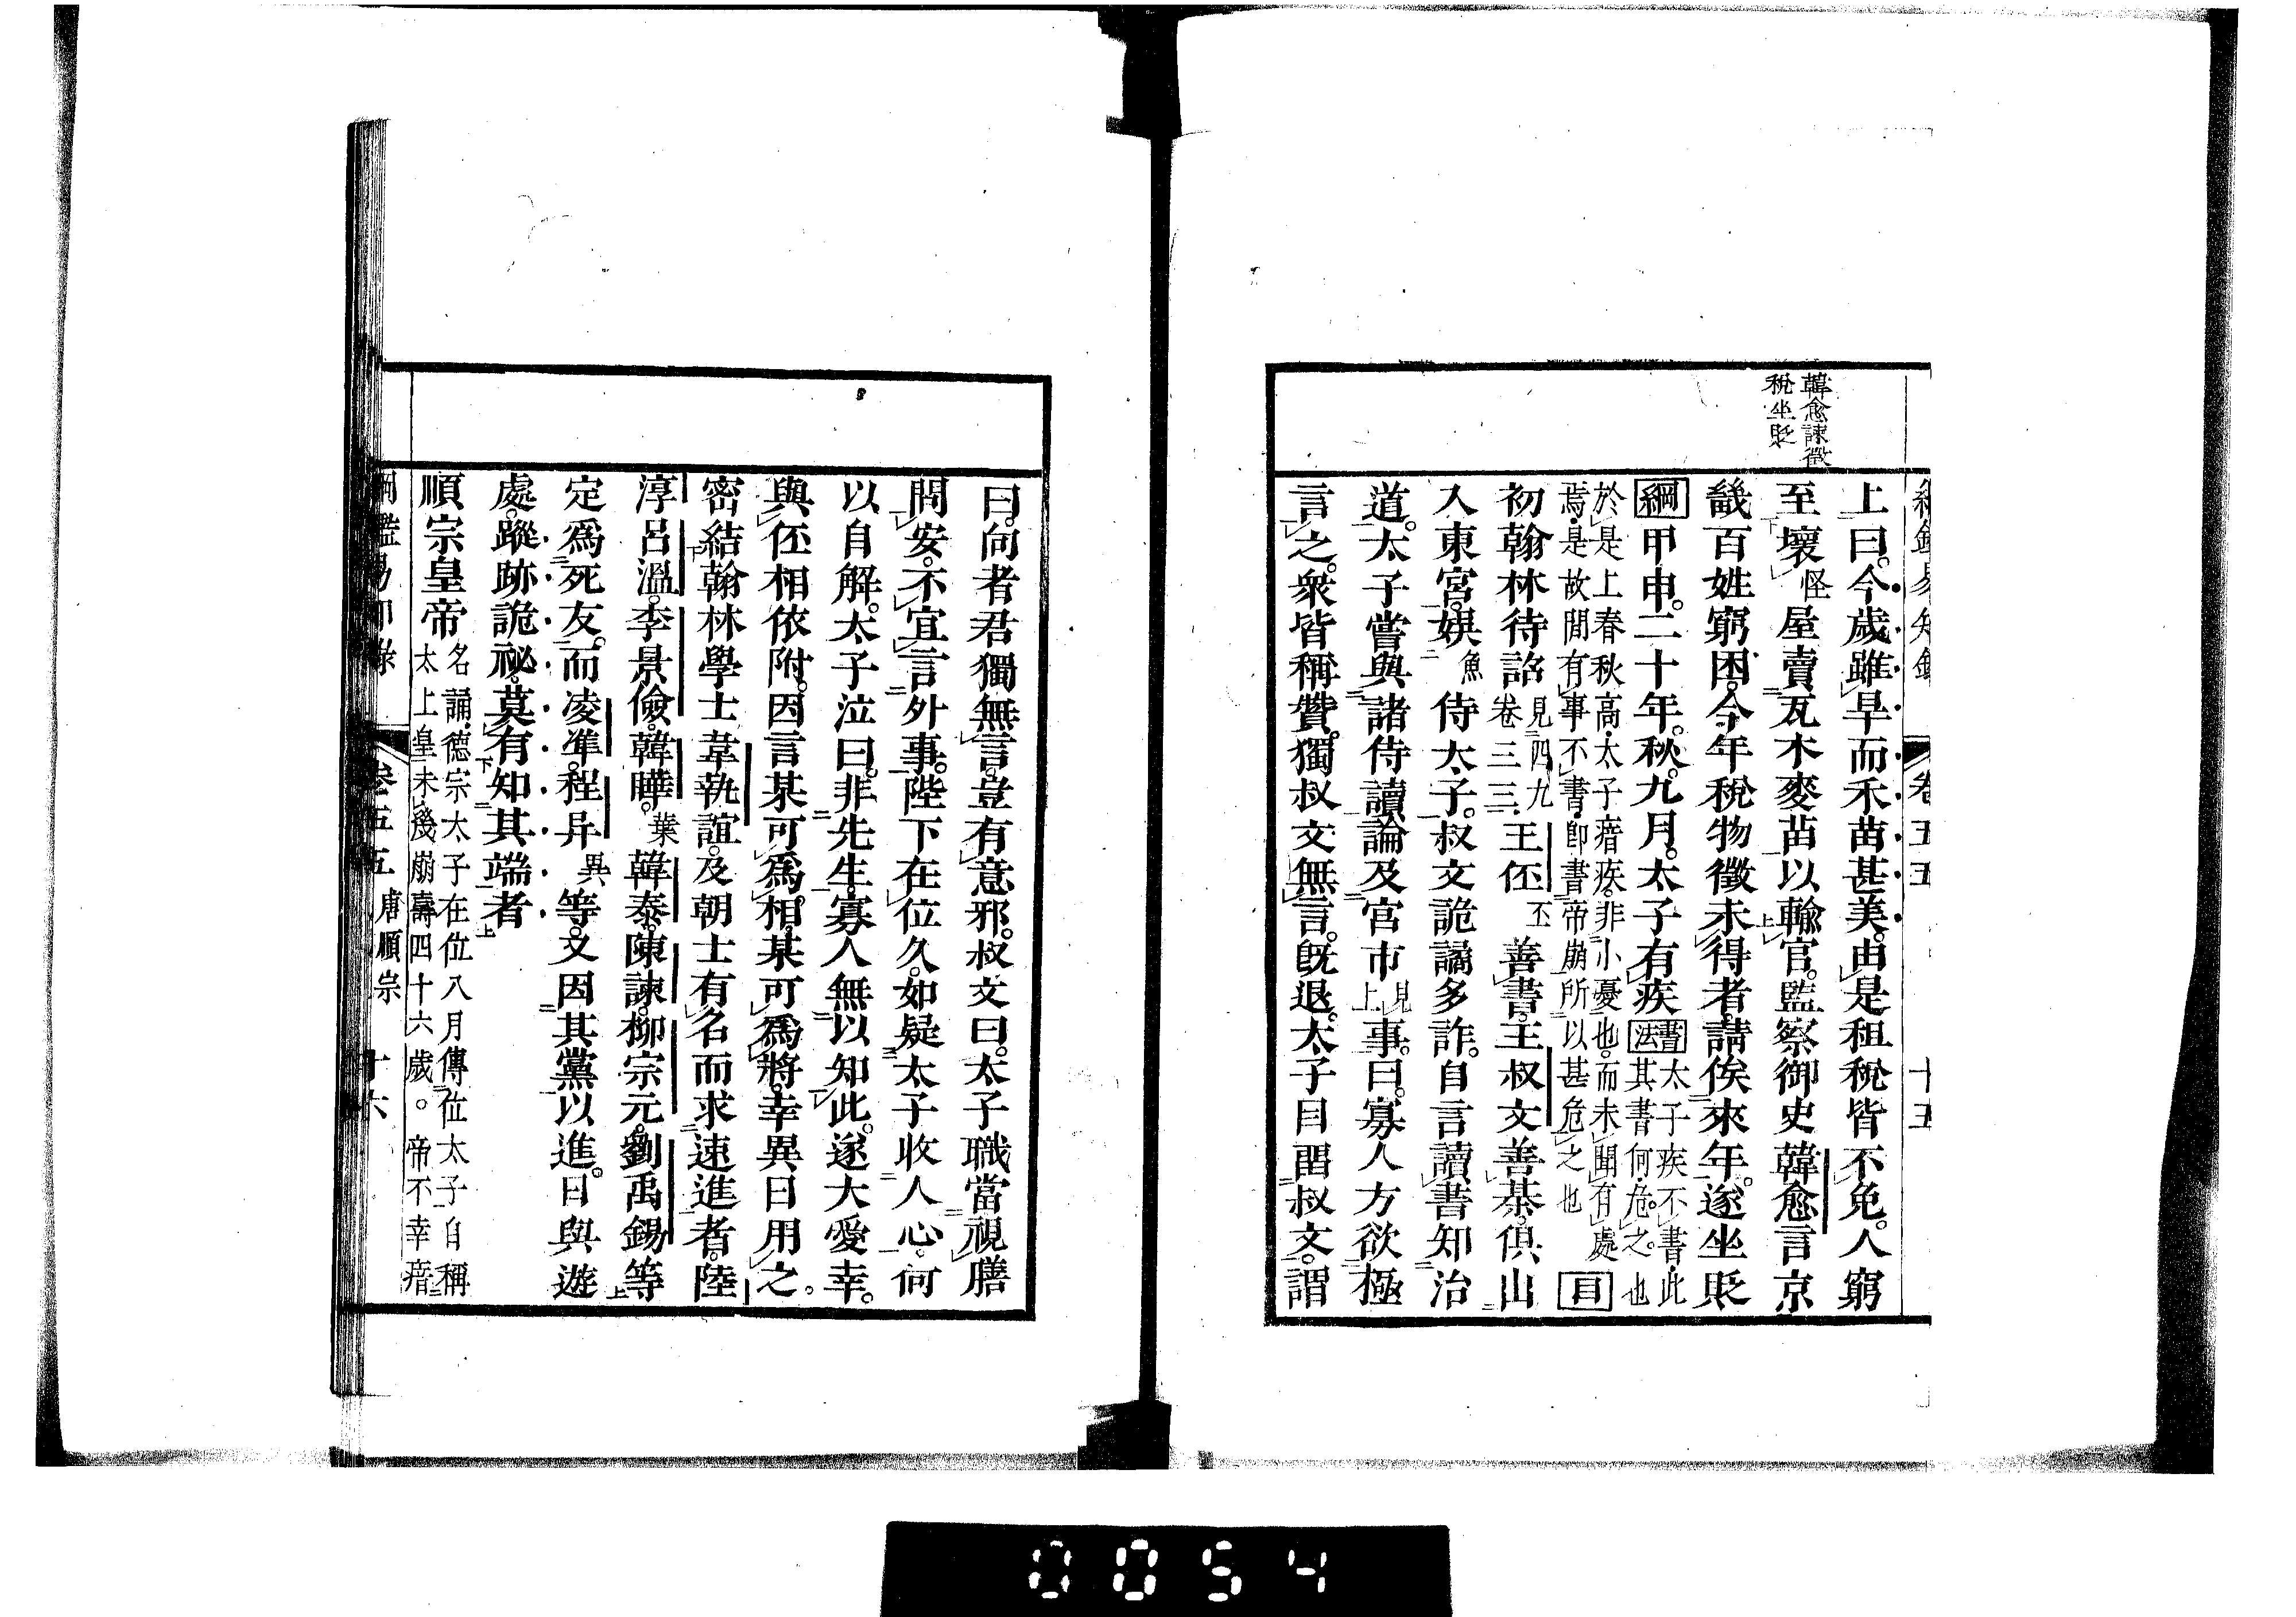 韓愈諫徵
稅坐貶
卷五五 十五
上曰。今歲雖旱而禾苗甚美。由是租稅皆不免。人窮
至壞怪屋賣瓦木麥苗以輸官。監察御史韓愈言京
畿百姓窮困。今年稅物徵未得者。請俟來年。遂坐貶
綱甲申。二十年。秋。九月。太子有疾書法太子疾不書。此其書何。危之。也
於是上春秋高。太子瘖疾。非小憂也。而未聞有處焉。是故閒有事不書。卽書帝崩所以甚危之也目
初翰林待詔見四九卷三三王伾丕善書。王叔文善棊。俱出
入東宮。娛魚侍太子。叔文詭譎多詐。自言讀書知治
道。太子嘗與諸侍讀論及宮市見上事。曰。寡人方欲極
言之。衆皆稱贊。獨叔文無言。旣退。太子自畱叔文。謂
曰。向者君獨無言。豈有意邪。叔文曰。太子職當視膳
問安。不宜言外事。陛下在位久。如疑太子收人心。何
以自解。太子泣曰。非先生。寡人無以知此。遂大愛幸。
與伾相依附。因言某可爲相。某可爲將。幸異日用之。
密結翰林學士韋執誼。及朝士有名而求速進者。陸
淳呂溫。李景儉。韓曄。葉韓泰。陳諫。柳宗元。劉禹錫等
定爲死友。而凌準。程异異等。又因其黨以進。日與遊
處。蹤跡詭祕。莫有知其端者
順宗皇帝名誦。德宗太子在位八月傳位太子自稱太上皇未幾崩壽四十六歲。帝不幸瘖
綱鑑易知錄 卷五五 唐順宗 十六
0054